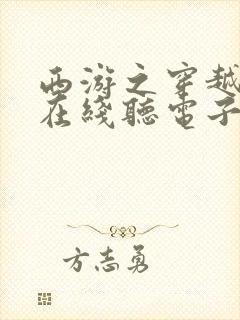 西游之穿越
在线聽電子
方志勇